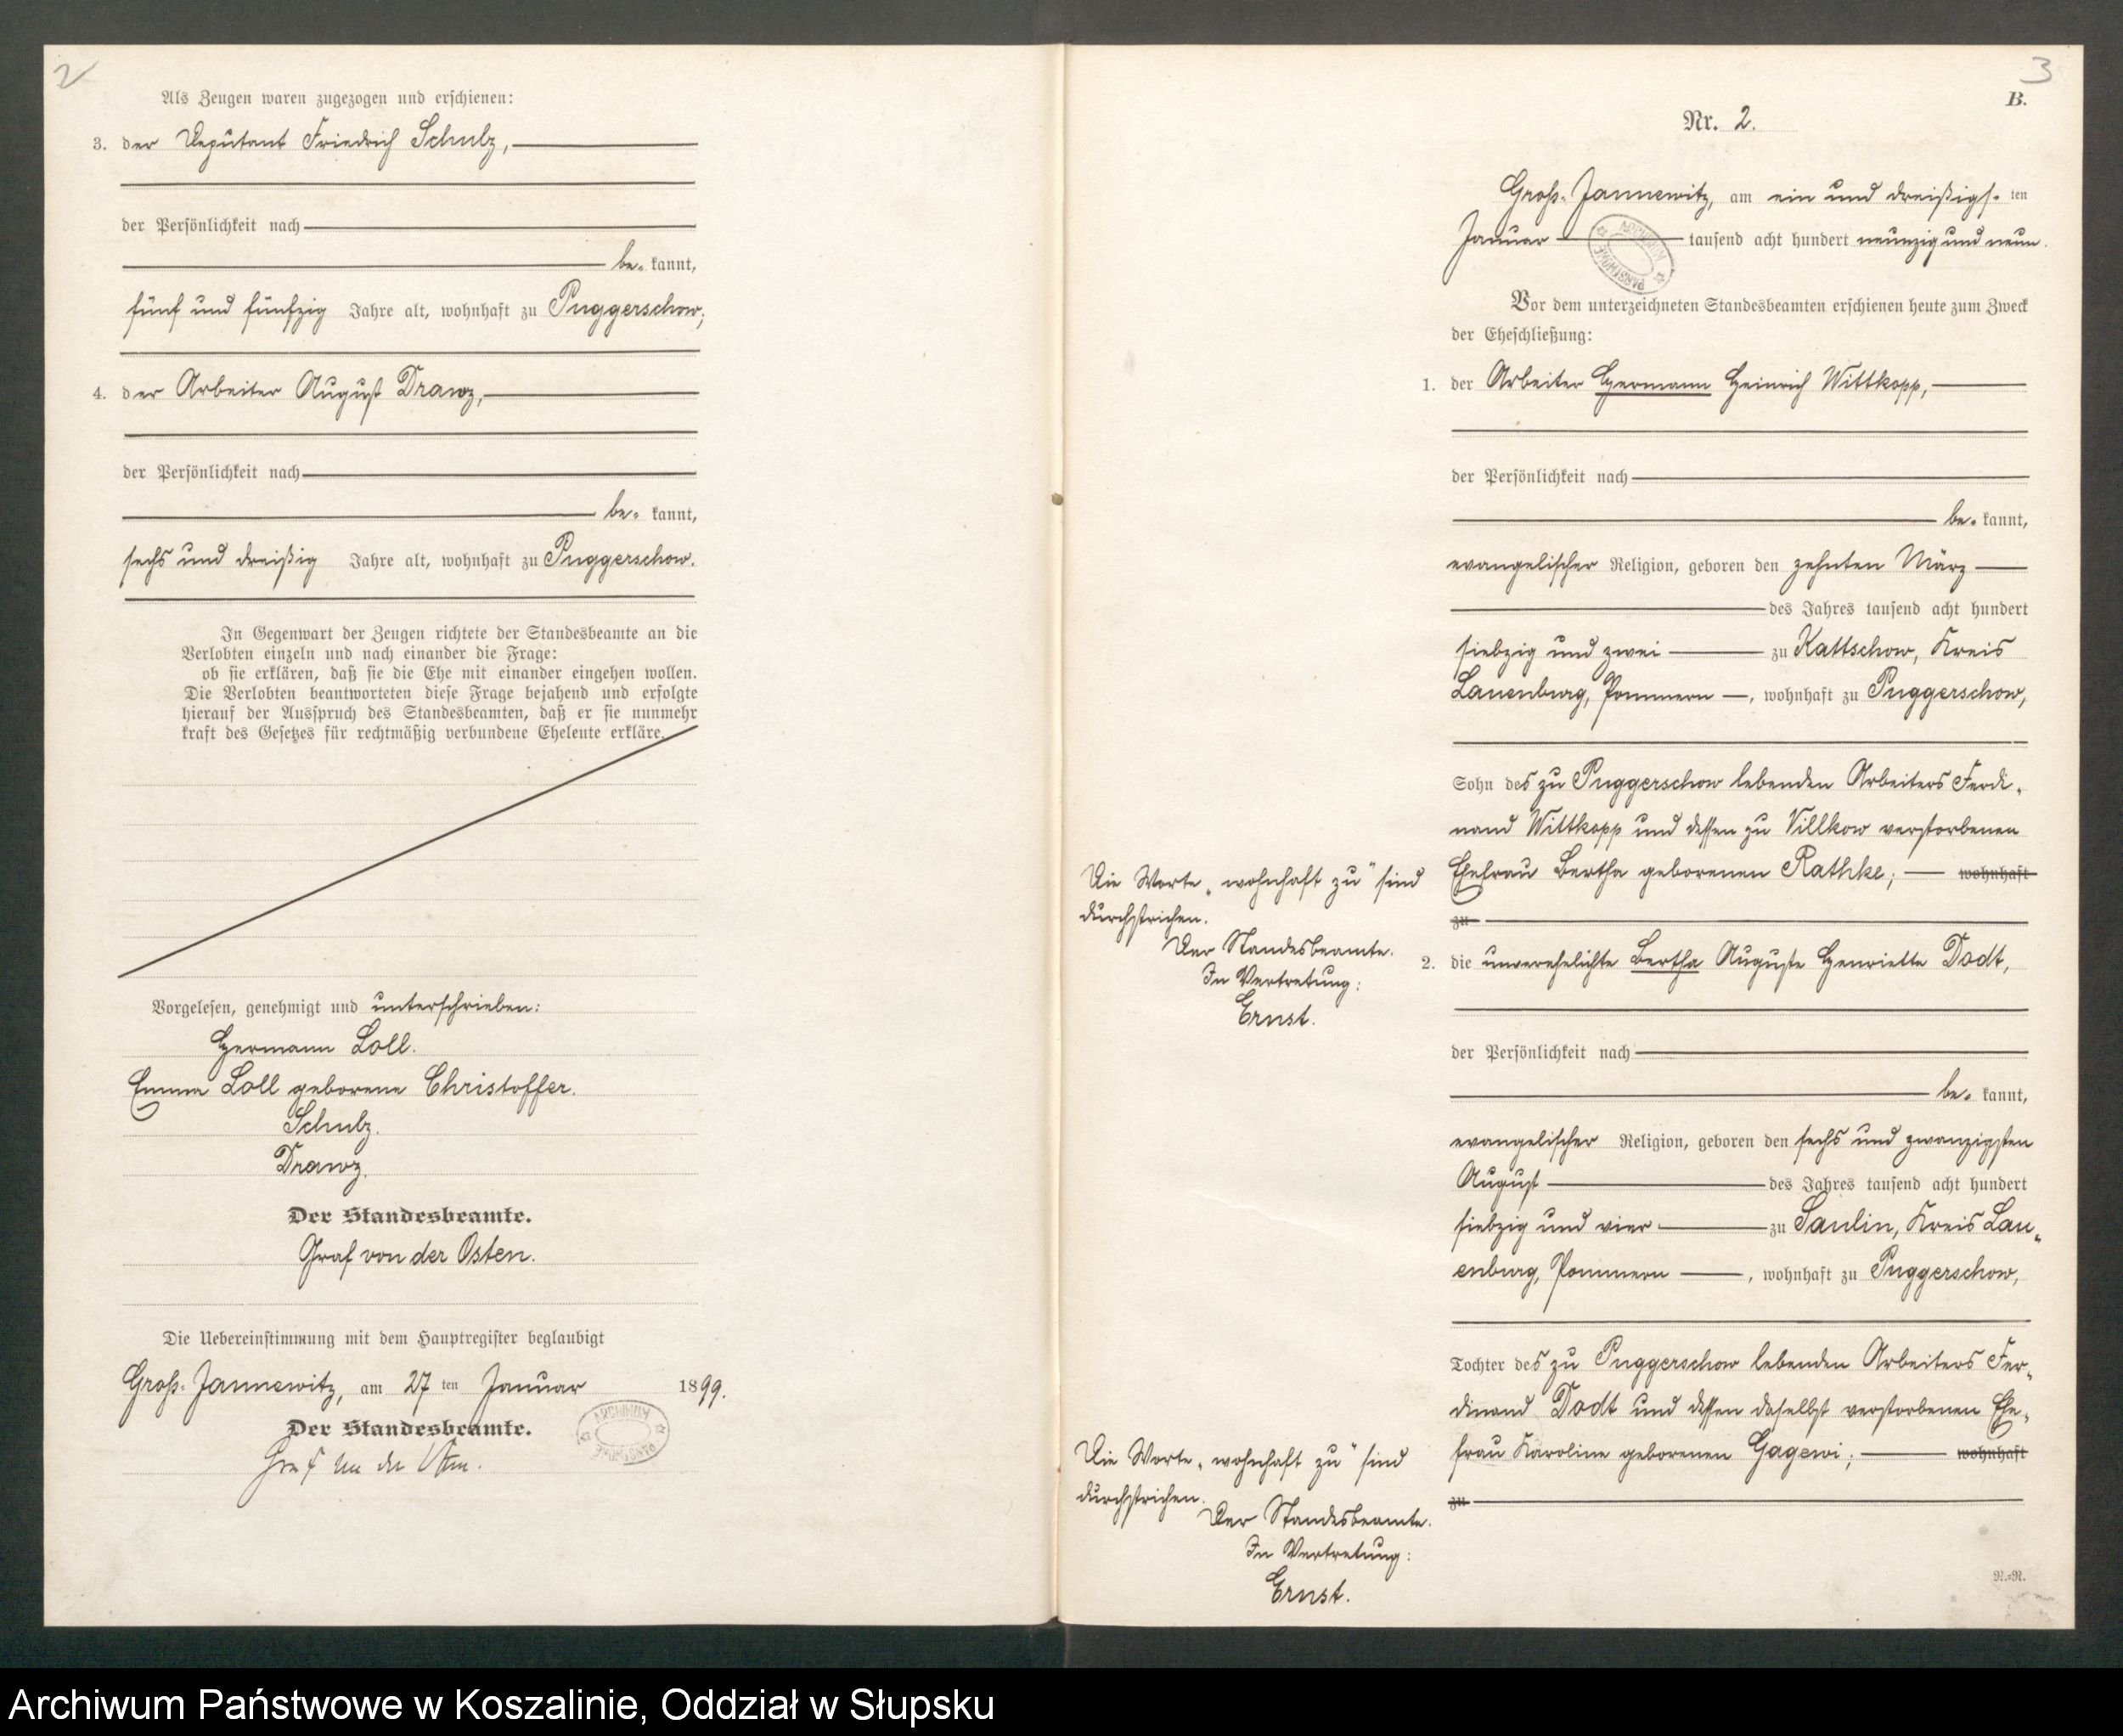 2
Als Zeugen waren zugezogen und erschienen:
3. der Deputant Friedrich Schulz,
der Persönlichkeit nach
be- kannt,
fünf und fünfzig Jahre alt, wohnhaft zu Puggerschow;
4. der Arbeiter August Drawz,
der Persönlichkeit nach
be- kannt,
sechs und dreißig Jahre alt, wohnhaft zu Puggerschow.
In Gegenwart der Zeugen richtete der Standesbeamte an die
Verlobten einzeln und nach einander die Frage:
ob sie erklären, daß sie die Ehe mit einander eingehen wollen.
Die Verlobten beantworteten diese Frage bejahend und erfolgte
hierauf der Ausspruch des Standesbeamten, daß er sie nunmehr
kraft des Gesetzes für rechtmäßig verbundene Eheleute erkläre.
Vorgelesen, genehmigt und unterschrieben:
Hermann Loll.
Emma Loll geborene Christoffer.
Schulz.
Drawz.
Der Standesbeamte.
Graf von der Osten.
Die Uebereinstimmung mit dem Hauptregister beglaubigt
Groß-Jannewitz, am 27 ten Januar 1899.
Der Standesbeamte.
Graf von der Osten.
ARCHIWUM PAŃSTWOWE
3
B.
Nr. 2.
Groß-Jannewitz, am ein und dreißigs- ten
Januar tausend acht hundert neunzig und neun.
ARCHIWUM PAŃSTWOWE
Vor dem unterzeichneten Standesbeamten erschienen heute zum Zweck
der Eheschließung:
1. der Arbeiter Hermann Heinrich Wittkopp,
der Persönlichkeit nach
be- kannt,
evangelischer Religion, geboren den zehnten März
des Jahres tausend acht hundert
siebzig und zwei zu Kattschow, Kreis
Lauenburg, Pommern, wohnhaft zu Puggerschow,
Sohn des zu Puggerschow lebenden Arbeiters Ferdi-
nand Wittkopp und dessen zu Villkow verstorbenen
Ehefrau Bertha geborenen Rathke; wohnhaft
zu
Die Worte „wohnhaft zu“ sind
durchstrichen.
Der Standesbeamte.
In Vertretung:
Ernst.
2. die unverehelichte Bertha Auguste Henriette Dodt,
der Persönlichkeit nach
be- kannt,
evangelischer Religion, geboren den sechs und zwanzigsten
August des Jahres tausend acht hundert
siebzig und vier zu Saulin, Kreis Lau-
enburg, Pommern, wohnhaft zu Puggerschow,
Tochter des zu Puggerschow lebenden Arbeiters Fer-
dinand Dodt und dessen daselbst verstorbenen Ehe-
frau Karoline geborenen Gagewi; wohnhaft
zu
Die Worte „wohnhaft zu“ sind
durchstrichen.
Der Standesbeamte.
In Vertretung:
Ernst.
N.=N.
Archiwum Państwowe w Koszalinie, Oddział w Słupsku